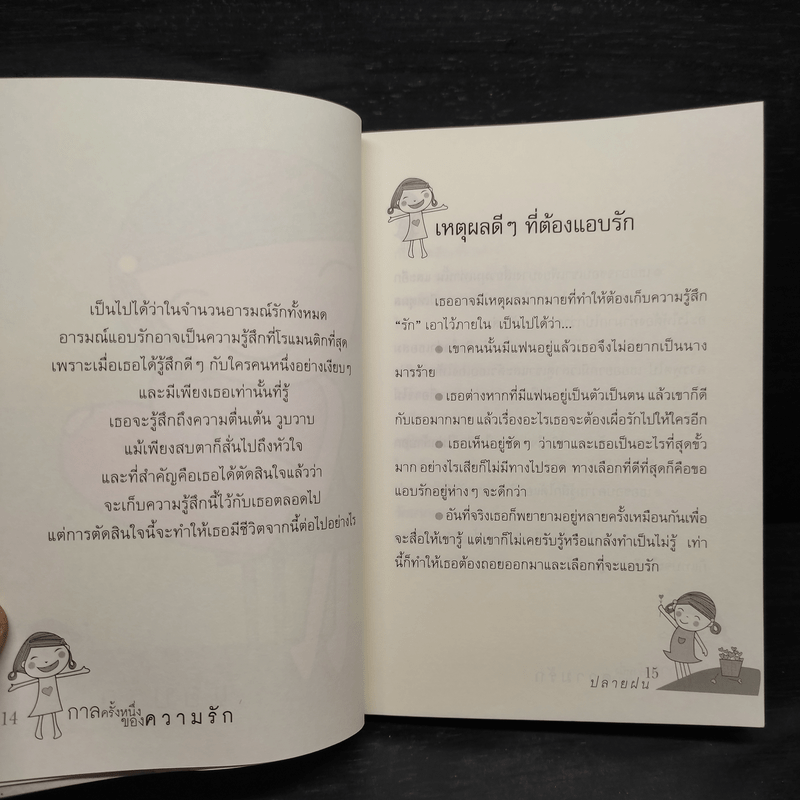 เป็นไปได้ว่าในจำนวนอารมณ์รักทั้งหมด
อารมณ์แอบรักอาจเป็นความรู้สึกที่โรแมนติกที่สุด
เพราะเมื่อเธอได้รู้สึกดีๆ กับใครคนหนึ่งอย่างเงียบๆ
และมีเพียงเธอเท่านั้นที่รู้
เธอจะรู้สึกถึงความตื่นเต้น วูบวาบ
แม้เพียงสบตาก็สั่นไปถึงหัวใจ
และที่สำคัญคือเธอได้ตัดสินใจแล้วว่า
จะเก็บความรู้สึกนี้ไว้กับเธอตลอดไป
แต่การตัดสินใจนี้จะทำให้เธอมีชีวิตจากนี้ต่อไปอย่างไร
14
กาลครั้งหนึ่ง
ของความรัก
เหตุผลดีๆ ที่ต้องแอบรัก
เธออาจมีเหตุผลมากมายที่ทำให้ต้องเก็บความรู้สึก
“รัก” เอาไว้ภายใน เป็นไปได้ว่า...
● เขาคนนั้นมีแฟนอยู่แล้วเธอจึงไม่อยากเป็นนาง
มารร้าย
● เธอต่างหากที่มีแฟนอยู่เป็นตัวเป็นตน แล้วเขาก็ดี
กับเธอมากมาย แล้วเรื่องอะไรเธอจะต้องเผื่อรักไปให้ใครอีก
● เธอเห็นอยู่ชัดๆ ว่าเขาและเธอเป็นอะไรที่สุดขั้ว
มาก อย่างไรเสียก็ไม่มีทางไปรอด ทางเลือกที่ดีที่สุดก็คือขอ
แอบรักอยู่ห่างๆ จะดีกว่า
● อันที่จริงเธอก็พยายามอยู่หลายครั้งเหมือนกันเพื่อ
จะสื่อให้เขารู้ แต่เขาก็ไม่เคยรับรู้หรือแกล้งทำเป็นไม่รู้ เท่า
นี้ก็ทำให้เธอต้องถอยออกมาและเลือกที่จะแอบรัก
15
ปลายฝน